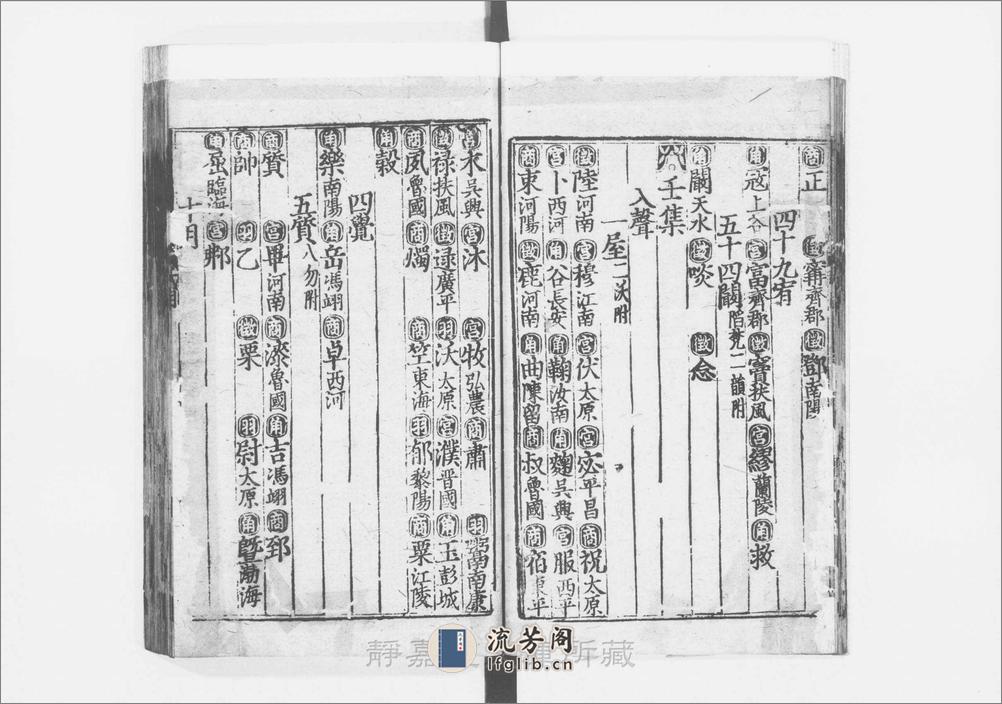 商正 徵甯齊郡 徵鄧南陽
四十九宥
角宼上谷 宮富齊郡 徵竇扶風 宮繆蘭陵 角救
五十四闞階梵二韻附
角闞天水 徵啖 徵念
壬集
入聲
一屋二沃附
徵陸河南 宮穆江南 宮伏太原 宮宓平昌 商祝太原
宮卜西河 角谷長安 角鞠汝南 角麴吳興 宮服西平
商束河陽 徵鹿河南 角曲陳留 商叔魯國 商宿東平
宮水吳興 宮沐 宮牧弘農 商肅 羽南康
徵禄扶風 徵逯廣平 羽沃太原 宮濮晉國 角玉彭城
商夙魯國 商燭 商竺東海 羽郁黎陽 商粟江陵
角㝅
四覺
角樂南陽 角岳馮翊 商卓西河
五質八勿附
商質 宮畢河南 商漆魯國 角吉馮翊 商郅
商帥 羽乙 徵栗 羽尉太原 角暨渤海
屈臨海 宮
十月
靜嘉 所藏
流芳阁
lfglib.cn